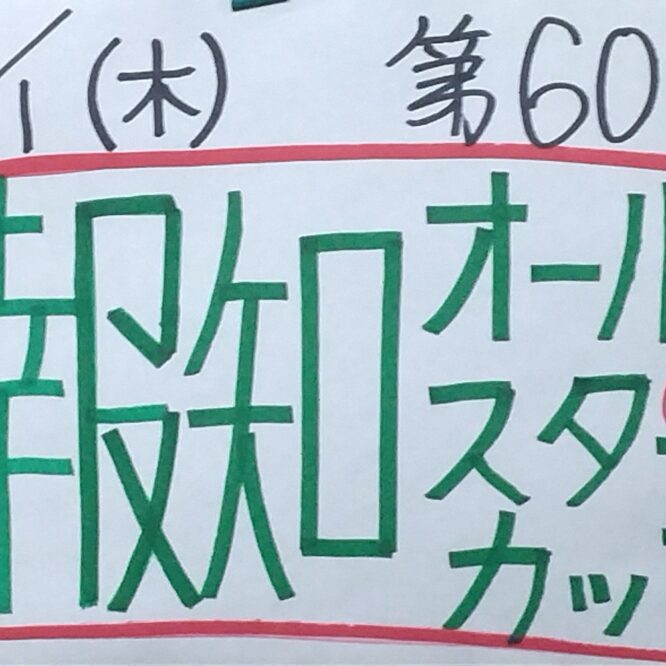 /1(木) 第60
報知 オール
スタ
カッ